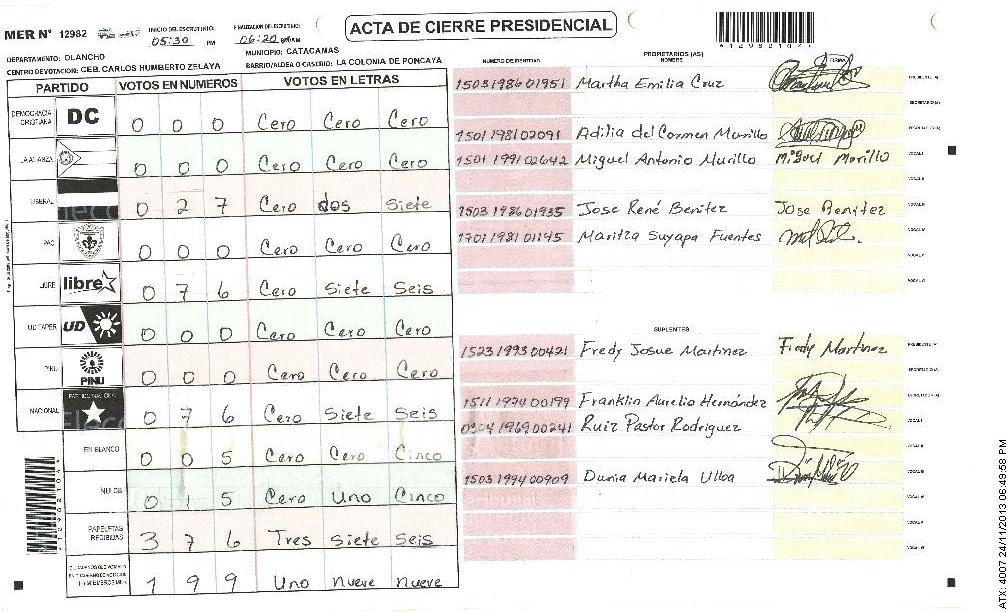 MER Nº 12982
INICIO DEL ESCRUTINIO: 05:30 PM
FINALIZACION DEL ESCRUTINIO: 06:20
ACTA DE CIERRE PRESIDENCIAL
*12982104*
DEPARTAMENTO: OLANCHO
MUNICIPIO: CATACAMAS
CENTRO DE VOTACION: CEB. CARLOS HUMBERTO ZELAYA
BARRIO/ALDEA O CASERIO: LA COLONIA DE PONCAYA
PARTIDO VOTOS EN NUMEROS VOTOS EN LETRAS
DEMOCRACIA CRISTIANA DC 0 0 0 Cero Cero Cero
LA ALIANZA 0 0 0 Cero Cero Cero
LIBERAL 0 2 7 Cero dos Siete
PAC 0 0 0 Cero Cero Cero
LIBRE libre 0 7 6 Cero Siete Seis
UD FAPER UD 0 0 0 Cero Cero Cero
PINU PINU 0 0 0 Cero Cero Cero
NACIONAL PARTIDO NACIONAL 0 7 6 Cero Siete Seis
EN BLANCO 0 0 5 Cero Cero Cinco
NULOS 0 1 5 Cero Uno Cinco
PAPELETAS RECIBIDAS 3 7 6 Tres Siete Seis
1 9 9 Uno nueve nueve
NUMERO DE IDENTIDAD PROPIETARIOS (AS) NOMBRE FIRMA
1503198601951 Martha Emilia Cruz PRESIDENTE (A)
SECRETARIO (A)
1501198102091 Adilia del Carmen Murillo ESCRUTADOR (A)
1501199102642 Miguel Antonio Murillo Miguel Morillo VOCAL I
VOCAL II
1503198601935 Jose René Benitez Jose Benitez VOCAL III
1701198101145 Maritza Suyapa Fuentes VOCAL IV
VOCAL V
VOCAL VI
SUPLENTES
1523199300421 Fredy Josue Martinez Fredy Martinez PRESIDENTE (A)
SECRETARIO (A)
1511197400199 Franklin Aurelio Hernández ESCRUTADOR (A)
196900241 Ruiz Pastor Rodriguez VOCAL I
VOCAL II
1503199400909 Dunia Mariela Ulloa VOCAL III
VOCAL IV
VOCAL V
VOCAL VI
ATX: 4007 24/11/2013 06:49:58 PM